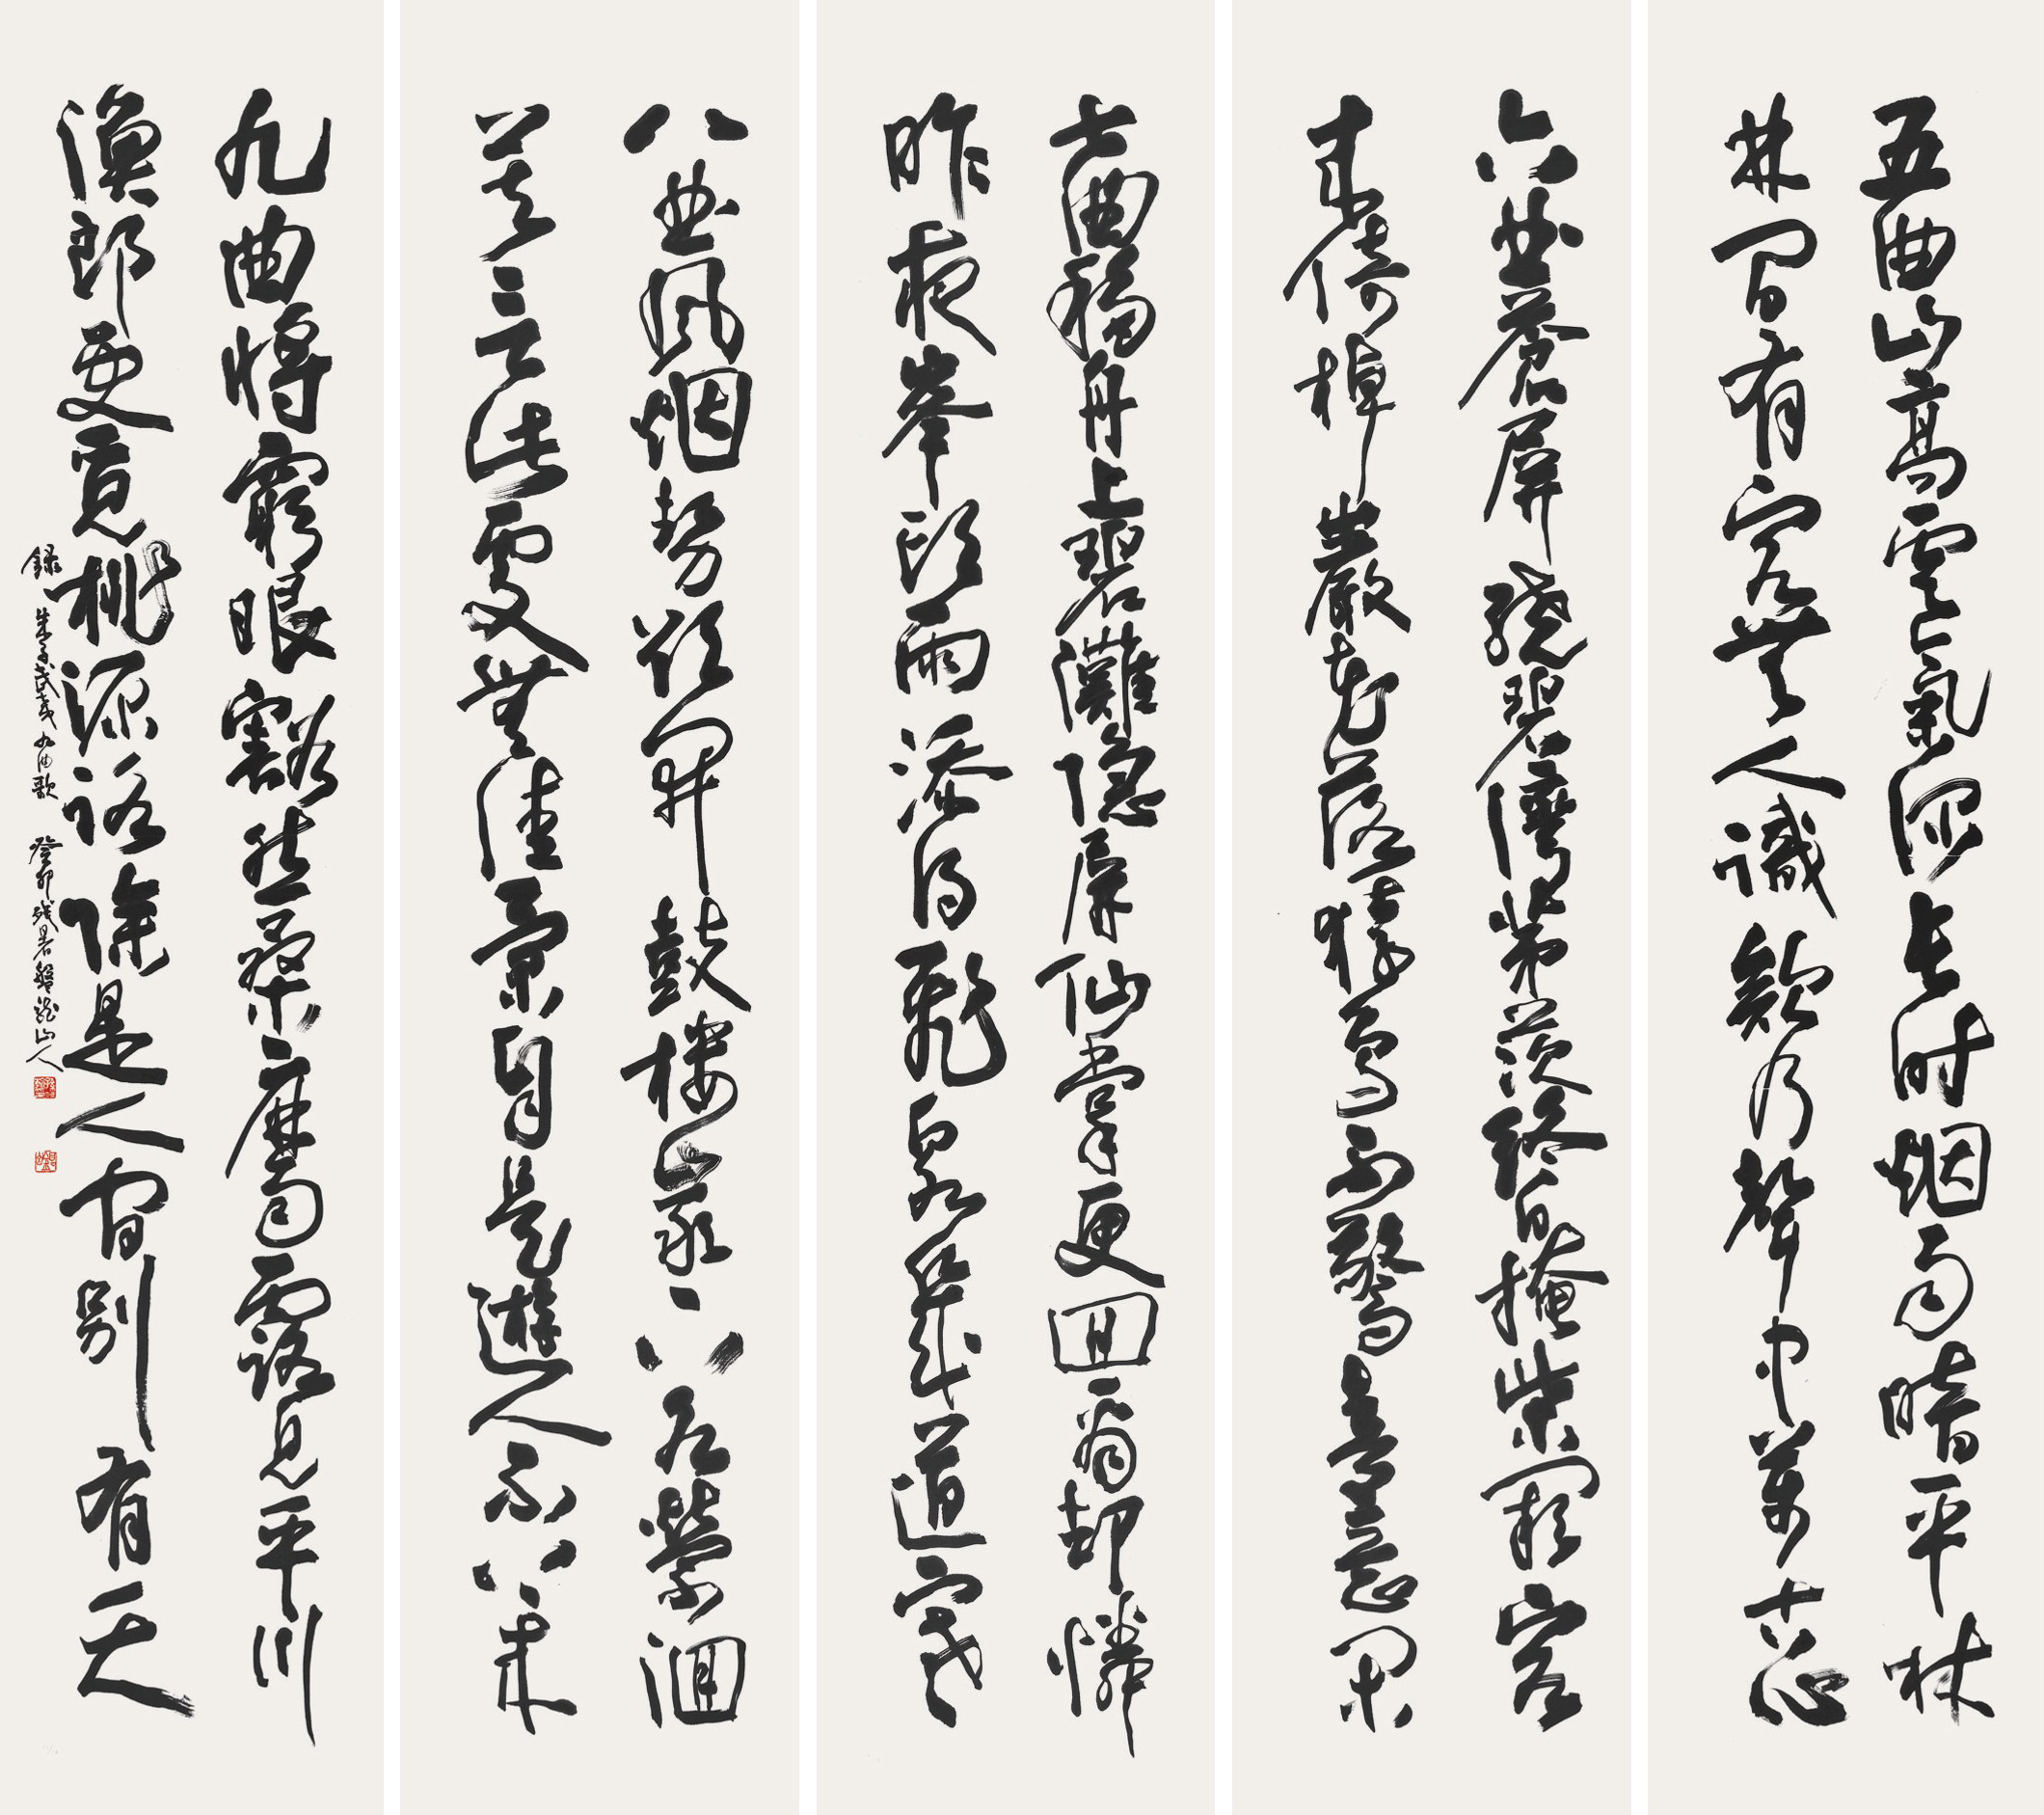 五曲山高雲氣深長时烟雨暗平林
林間有客無人識欸乃聲中萬古心
六曲蒼屏繞碧灣茅茨終日掩柴關客
來倚棹巖花落猿鳥不驚春意閑
七曲移舟上碧灘隱屏仙掌更回看却憐
昨夜峯頭雨添得飛泉幾道寒
八曲風烟勢欲開鼓樓巖下水縈洄
莫言此處無佳景自是遊人不上來
九曲將窮眼豁然桑麻雨露見平川
漁郎更覓桃源路除是人間別有天
録朱子武夷九曲歌 癸卯殘暑盤龍山人